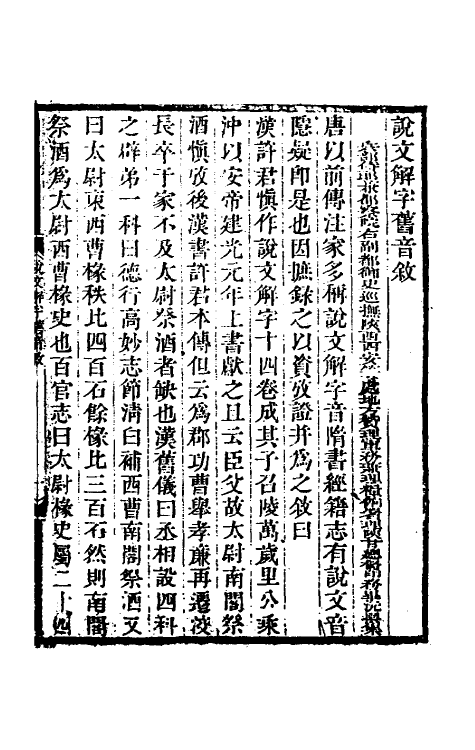 說文解字舊音敘
兵部侍郎兼都察院右副都御史巡撫陝西
唐以前傳注家多稱說文解字音隋書經籍志有說文音
隱疑即是也因摭錄之以資攷證并為之敘曰
漢許君慎作說文解字十四卷成其子召陵萬歲里公乘
沖以安帝建光元年上書獻之且云臣父故太尉南閣祭
酒慎攷後漢書許君本傳但云為郡功曹舉孝廉再遷洨
長卒于家不及太尉祭酒者缺也漢舊儀曰丞相設四科
之辟第一科曰德行高妙志節清白補西曹南閤祭酒又
曰太尉東西曹掾秩比四百石餘掾比三百石然則南閣
祭酒為太尉西曹掾史也百官志曰太尉掾史屬二十四
說文解字舊音敘